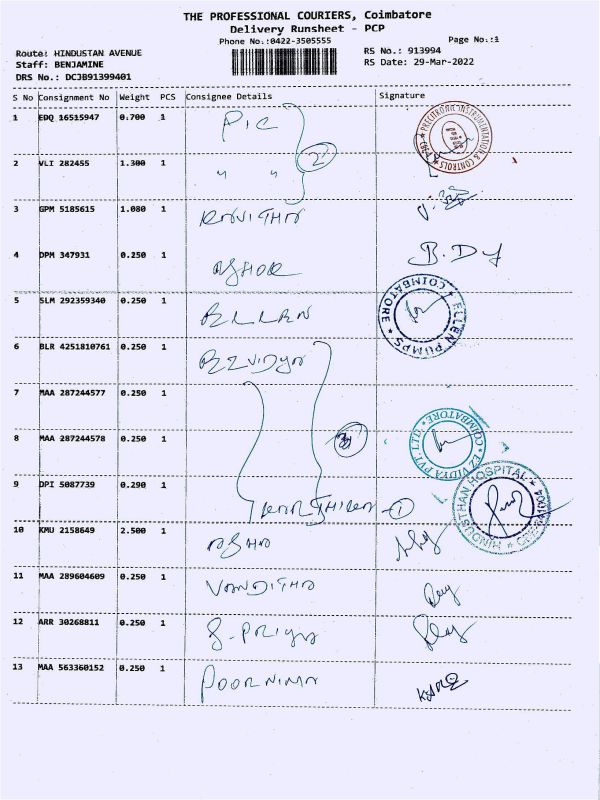 THE PROFESSIONAL COURIERS, Coimbatore
Delivery Runsheet - PCP
Phone No.:0422-3505555
Page No.:1
Route: HINDUSTAN AVENUE
RS No.: 913994
Staff: BENJAMINE
RS Date: 29-Mar-2022
DRS No.: DCJB91399401
S No Consignment No Weight PCS Consignee Details Signature
1 EDQ 16515947 0.700 1 PIC
PRECITRONIC INSTRUMENTATION & CONTROLS
2
2 VLI 282455 1.300 1 " "
3 GPM 5185615 1.080 1
4 DPM 347931 0.250 1 B.Dy
5 SLM 292359340 0.250 1 ELLEN
ELLEN PUMPS * COIMBATORE *
6 BLR 4251810761 0.250 1 EZVIDYA
7 MAA 287244577 0.250 1
8 MAA 287244578 0.250 1
EZ VIDYA PVT. LTD. * COIMBATORE *
9 DPI 5087739 0.290 1
HINDUSTHAN HOSPITAL
- 1
10 KMU 2158649 2.500 1 ASHA
11 MAA 289604609 0.250 1 VANDITHA
12 ARR 30268811 0.250 1 S. PRIYA
13 MAA 563360152 0.250 1 POORNIMA